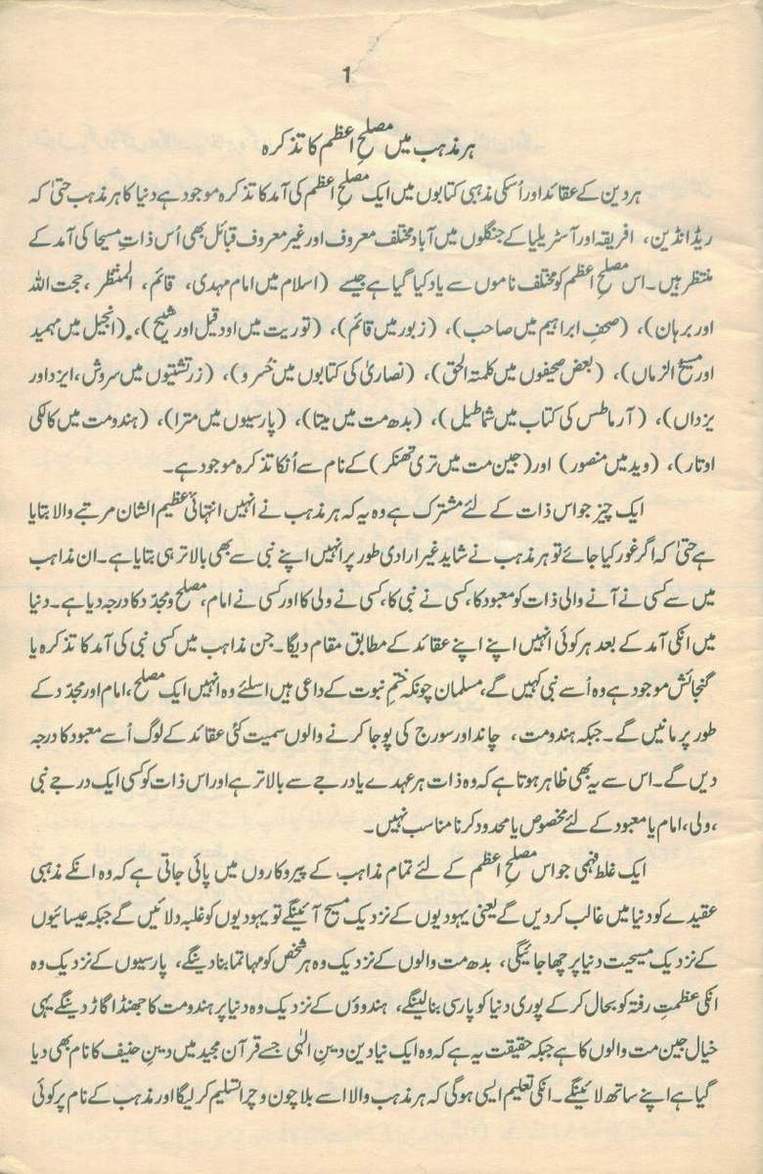 1
ہر مذہب میں مصلحِ اعظم کا تذکرہ
ہر دین کے عقائد اور اُسکی مذہبی کتابوں میں ایک مصلحِ اعظم کی آمد کا تذکرہ موجود ہے دنیا کا ہر مذہب حتیٰ کہ
ریڈ انڈین، افریقہ اور آسٹریلیا کے جنگلوں میں آباد مختلف معروف اور غیر معروف قبائل بھی اُس ذاتِ مسیحا کی آمد کے
منتظر ہیں۔ اس مصلحِ اعظم کو مختلف ناموں سے یاد کیا گیا ہے جیسے (اسلام میں امام مہدی، قائم، المنتظر، حجت اللہ
اور برہان)، (صحفِ ابراہیم میں صاحب)، (زبور میں قائم)، (توریت میں اودقیل اور شیخ)، (انجیل میں مہمید
اور مسیح الزماں)، (بعض صحیفوں میں کلمتہ الحق)، (نصاریٰ کی کتابوں میں خُسرو)، (زرتشتیوں میں سروش، ایزد اور
یزداں)، (آرماطس کی کتاب میں شماطیل)، (بدھ مت میں میتا)، (پارسیوں میں مترا)، (ہندومت میں کالکی
اوتار)، (وید میں منصور) اور (جین مت میں تری تھنکر) کے نام سے اُنکا تذکرہ موجود ہے۔
ایک چیز جو اس ذات کے لئے مشترک ہے وہ یہ کہ ہر مذہب نے انہیں انتہائی عظیم الشان مرتبے والا بتایا
ہے حتیٰ کہ اگر غور کیا جائے تو ہر مذہب نے شاید غیر ارادی طور پر انہیں اپنے نبی سے بھی بالاتر ہی بتایا ہے۔ ان مذاہب
میں سے کسی نے آنے والی ذات کو معبود کا، کسی نے نبی کا، کسی نے ولی کا اور کسی نے امام، مصلح و مجدّد کا درجہ دیا ہے۔ دنیا
میں انکی آمد کے بعد ہر کوئی انہیں اپنے اپنے عقائد کے مطابق مقام دیگا۔ جن مذاہب میں کسی نبی کی آمد کا تذکرہ یا
گنجائش موجود ہے وہ اُسے نبی کہیں گے، مسلمان چونکہ ختمِ نبوت کے داعی ہیں اسلئے وہ انہیں ایک مصلح، امام اور مجدّد کے
طور پر مانیں گے۔ جبکہ ہندومت، چاند اور سورج کی پوجا کرنے والوں سمیت کئی عقائد کے لوگ اُسے معبود کا درجہ
دیں گے۔ اس سے یہ بھی ظاہر ہوتا ہے کہ وہ ذات ہر عہدے یا درجے سے بالاتر ہے اور اس ذات کو کسی ایک درجے نبی
، ولی، امام یا معبود کے لئے مخصوص یا محدود کرنا مناسب نہیں۔
ایک غلط فہمی جو اس مصلحِ اعظم کے لئے تمام مذاہب کے پیروکاروں میں پائی جاتی ہے کہ وہ انکے مذہبی
عقیدے کو دنیا میں غالب کر دیں گے یعنی یہودیوں کے نزدیک مسیح آئینگے تو یہودیوں کو غلبہ دلائیں گے جبکہ عیسائیوں
کے نزدیک مسیحیت دنیا پر چھا جائیگی، بدھ مت والوں کے نزدیک وہ ہر شخص کو مہاتما بنا دینگے، پارسیوں کے نزدیک وہ
انکی عظمتِ رفتہ کو بحال کر کے پوری دنیا کو پارسی بنا لینگے، ہندوؤں کے نزدیک وہ دنیا پر ہندومت کا جھنڈا گاڑ دینگے یہی
خیال جین مت والوں کا ہے جبکہ حقیقت یہ ہے کہ وہ ایک نیا دین دینِ الٰہی جسے قرآن مجید میں دینِ حنیف کا نام بھی دیا
گیا ہے اپنے ساتھ لائینگے۔ انکی تعلیم ایسی ہوگی کہ ہر مذہب والا اسے بلا چون و چرا تسلیم کر لیگا اور مذہب کے نام پر کوئی